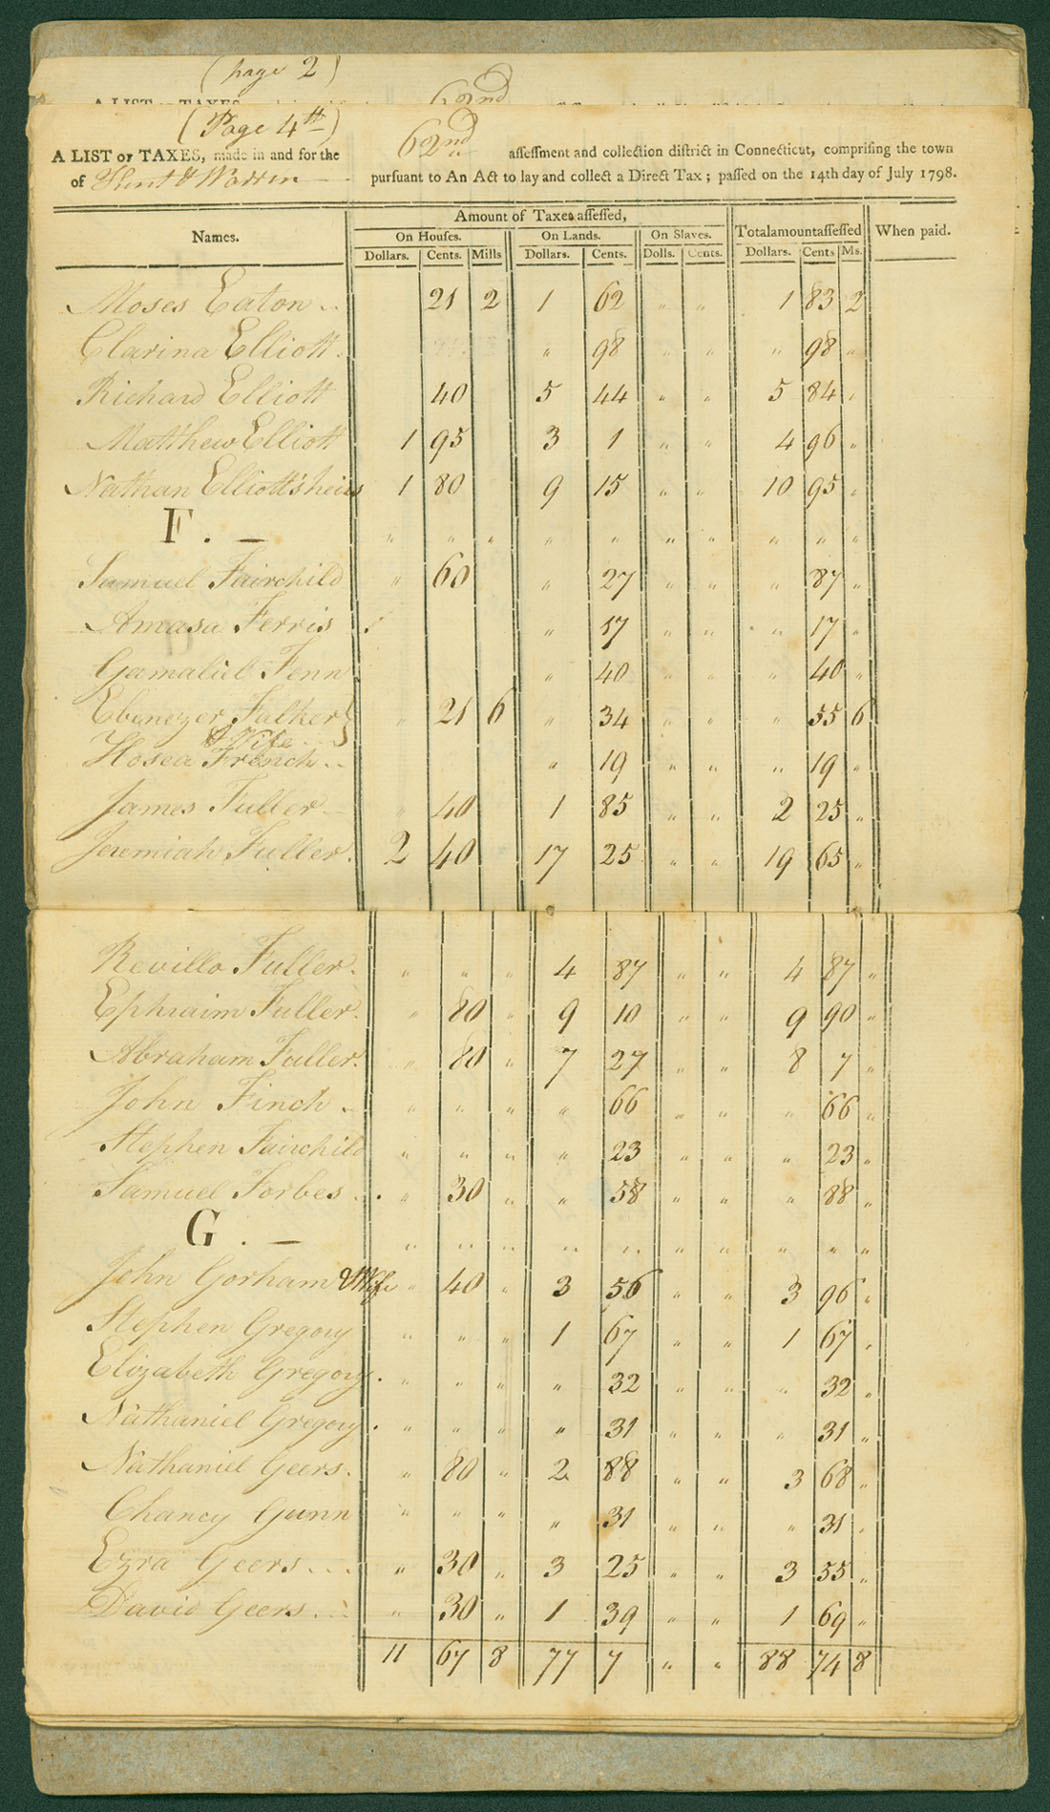 (page 2)
A LIST OF TAXES 62nd
(Page 4th)
A LIST OF TAXES, made in and for the 62nd assessment and collection district in Connecticut, comprising the town
of Kent & Warren pursuant to An Act to lay and collect a Direct Tax; passed on the 14th day of July 1798.
Amount of Taxes assessed,
Names. On Houses. On Lands. On Slaves. Total amount assessed When paid.
Dollars. Cents. Mills Dollars. Cents. Dolls. Cents. Dollars. Cents Ms.
Moses Eaton .. 21 2 1 62 " " 1 83 2
Clarina Elliott. " 98 " " " 98 "
Richard Elliott 40 5 44 " " 5 84 "
Matthew Elliott 1 95 3 1 " " 4 96 "
Nathan Elliott's heirs 1 80 9 15 " " 10 95 "
F. — " " " " " " " " " "
Samuel Fairchild " 60 " 27 " " " 87 "
Amasa Ferris " 17 " " " 17 "
Gamaliel Fenn " 40 " " " 40 "
Ebenezer Falker } " 21 6 " 34 " " " 55 6
& Wife
Hosea French .. " 19 " " " 19 "
James Fuller " 40 1 85 " " 2 25 "
Jeremiah Fuller. 2 40 17 25 " " 19 65 "
Revillo Fuller. " " " 4 87 " " 4 87 "
Ephraim Fuller. " 80 " 9 10 " " 9 90 "
Abraham Fuller. " 80 " 7 27 " " 8 7 "
John Finch . " " " " 66 " " " 66 "
Stephen Fairchild " " " " 23 " " " 23 "
Samuel Forbes . " 30 " " 58 " " " 88 "
G. — " " " " " " " " " "
John Gorham & Wife " 40 " 3 56 " " 3 96 "
Stephen Gregory " " " 1 67 " " 1 67 "
Elizabeth Gregory. " " " " 32 " " " 32 "
Nathaniel Gregory. " " " " 31 " " " 31 "
Nathaniel Geers. " 80 " 2 88 " " 3 68 "
Chancy Gunn " " " " 31 " " " 31 "
Ezra Geers ... " 30 " 3 25 " " 3 55 "
David Geers ... " 30 " 1 39 " " 1 69 "
11 67 8 77 7 " " 88 74 8